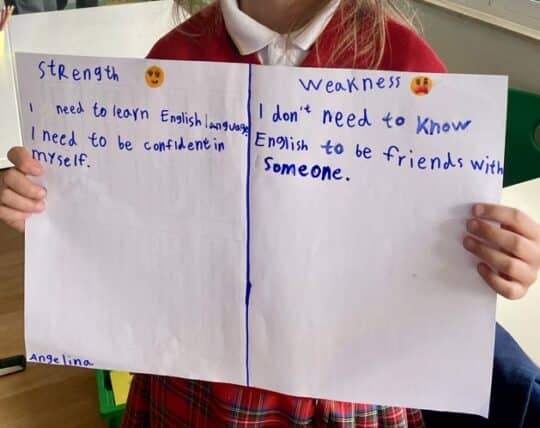 Strength
I need to learn English language
I need to be confident in
myself.
Weakness
I don't need to know
English to be friends with
someone.
Angelina